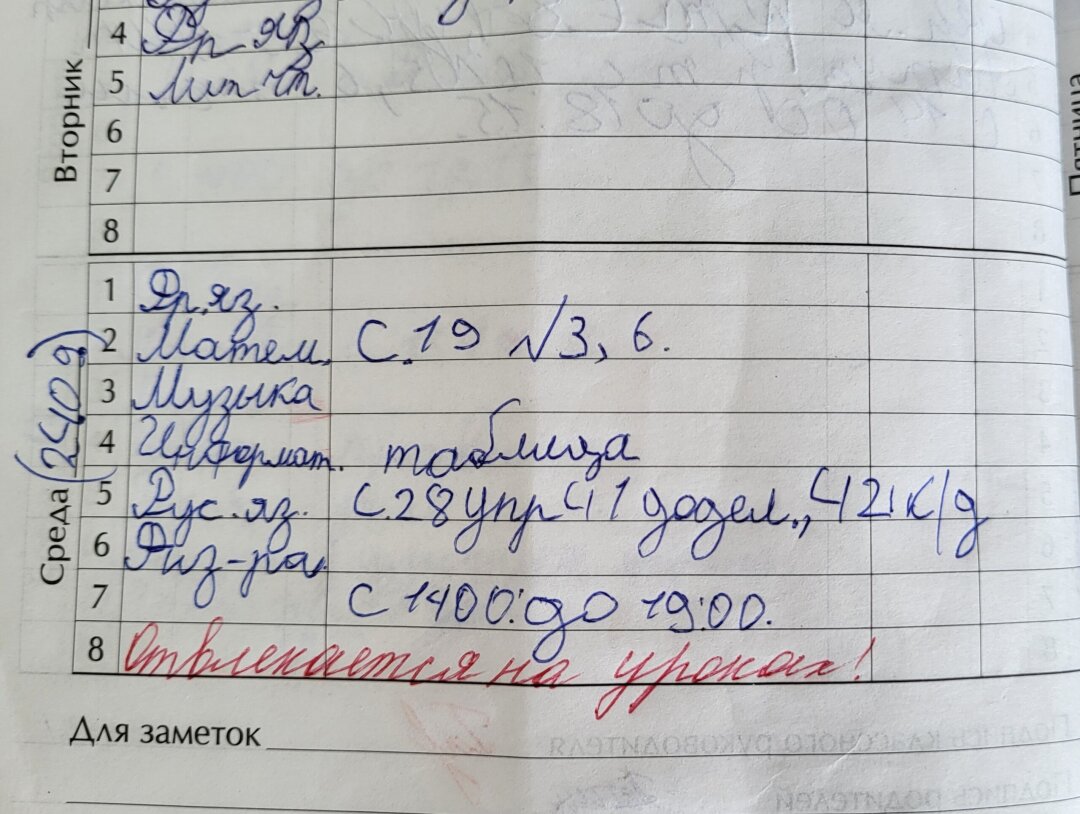 Вторник
4 Фр яз
5 Лит чт.
6
7
8
Пятница
Среда (24.09)
1 Фр.яз.
2 Матем. С.19 №3, 6.
3 Музыка
4 Информат. таблица
5 Рус.яз. С.28 упр 41 додел., 42 к/д
6 Физ-ра.
7 С 1400: до 19:00.
8 Отвлекается на уроках!
Для заметок